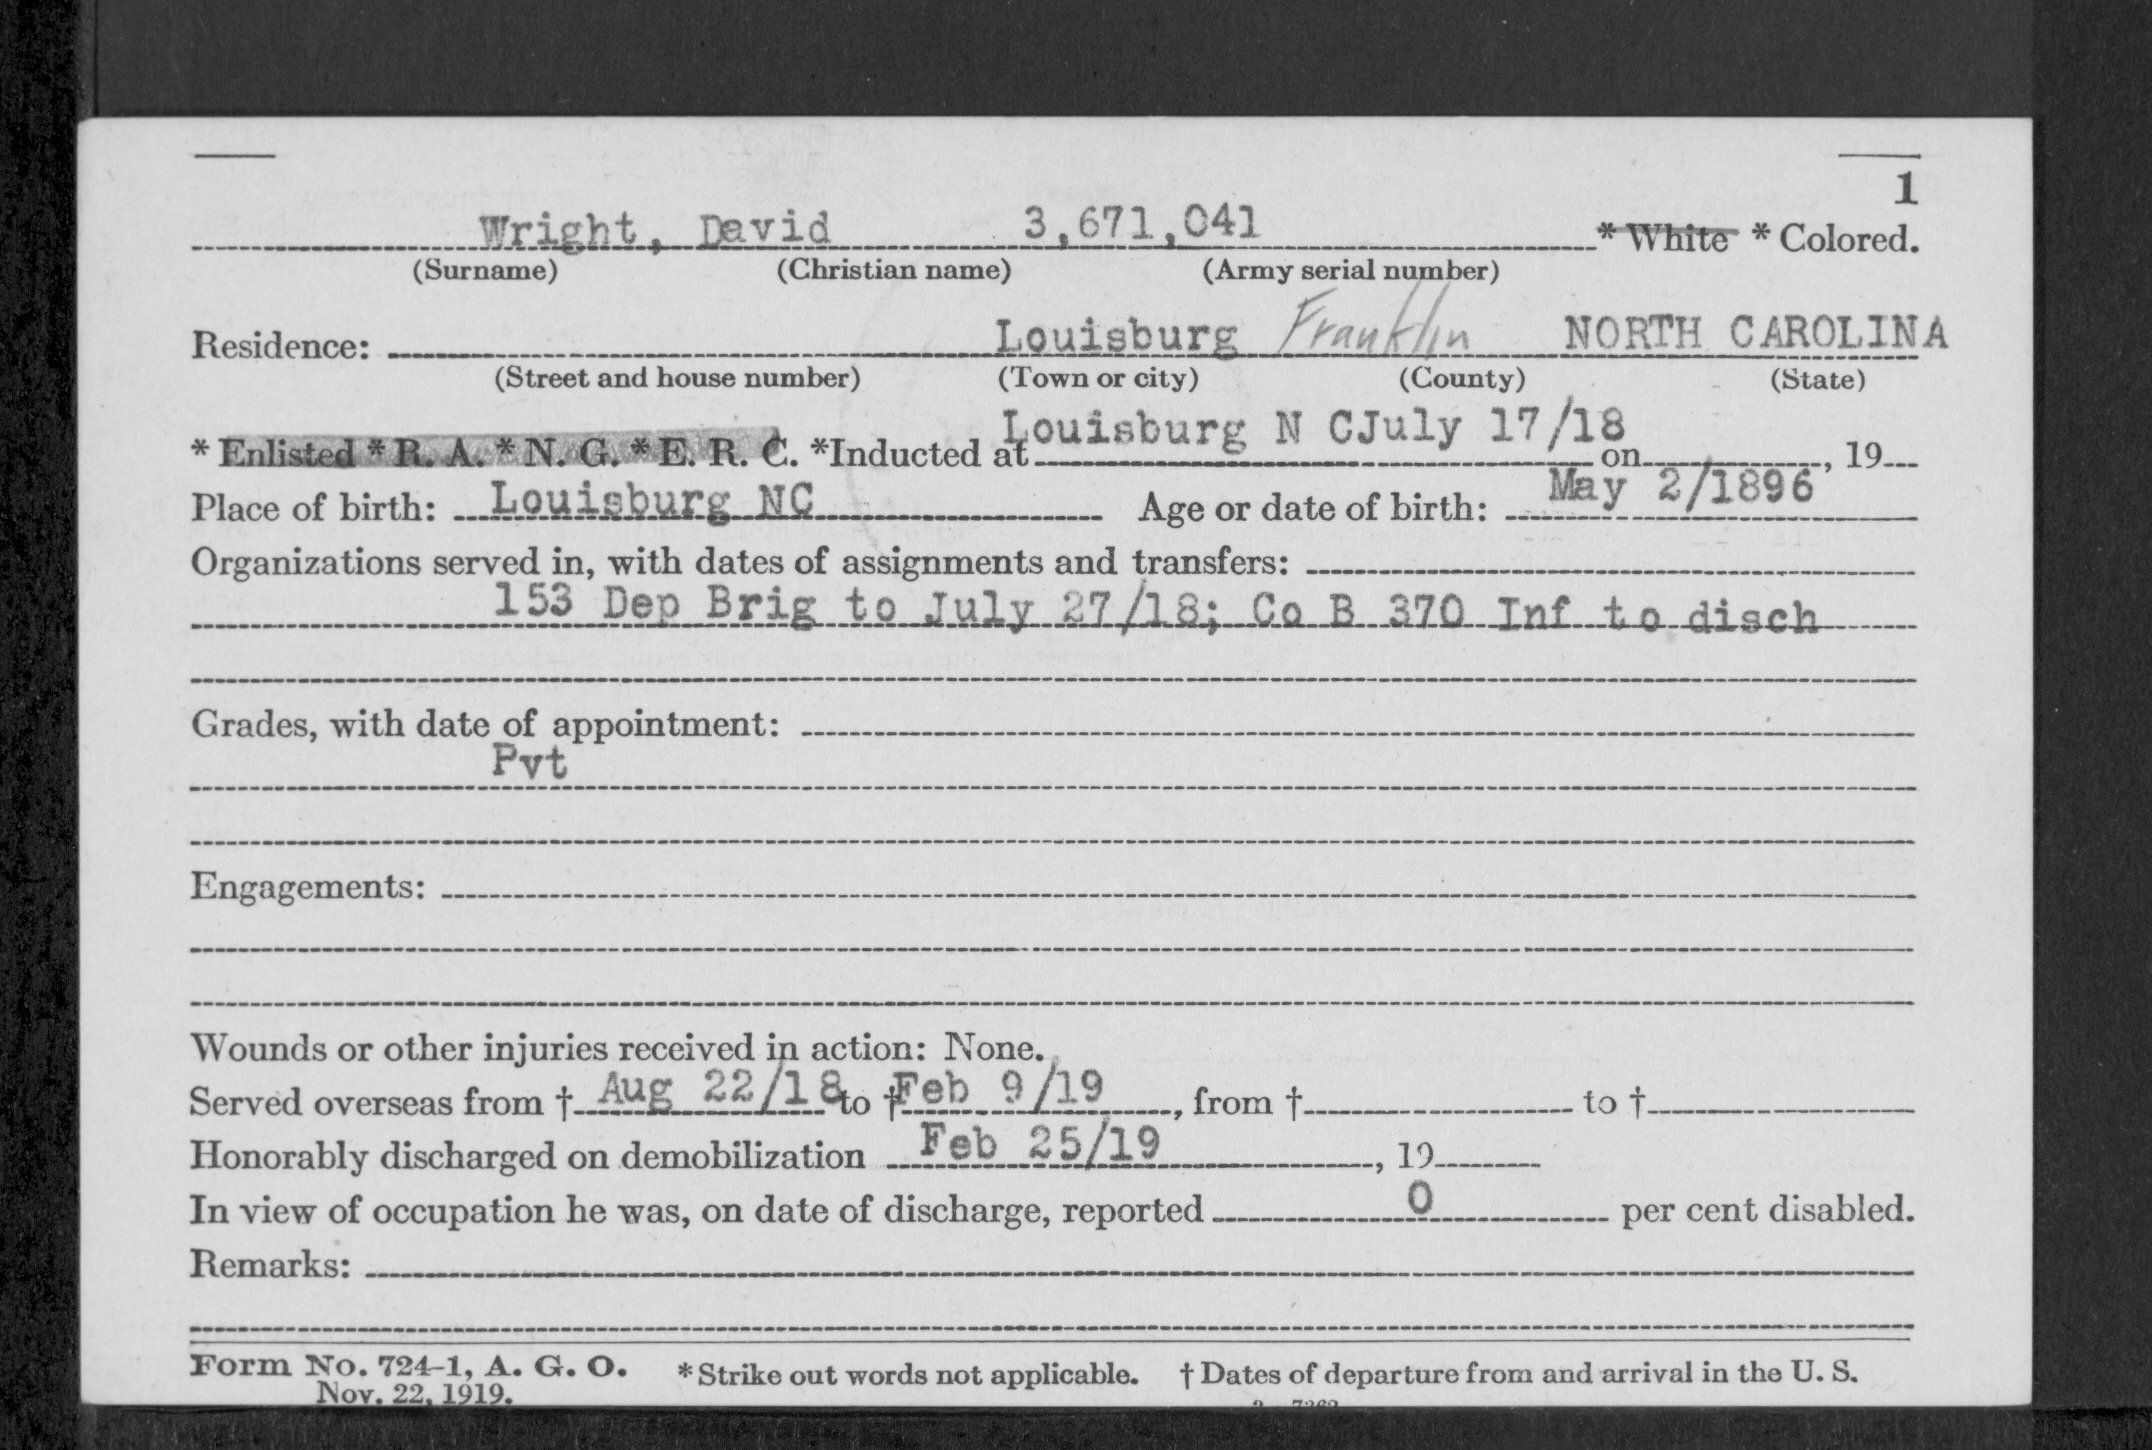 1
Wright, David 3,671,041 * White * Colored.
(Surname) (Christian name) (Army serial number)
Residence: Louisburg Franklin NORTH CAROLINA
(Street and house number) (Town or city) (County) (State)
* Enlisted * R. A. * N. G. * E. R. C. *Inducted at Louisburg N C July 17/18 on , 19
Place of birth: Louisburg NC Age or date of birth: May 2/1896
Organizations served in, with dates of assignments and transfers:
153 Dep Brig to July 27/18; Co B 370 Inf to disch
Grades, with date of appointment:
Pvt
Engagements:
Wounds or other injuries received in action: None.
Served overseas from † Aug 22/18 to † Feb 9/19, from † to †
Honorably discharged on demobilization Feb 25/19, 19
In view of occupation he was, on date of discharge, reported 0 per cent disabled.
Remarks:
Form No. 724-1, A. G. O. * Strike out words not applicable. † Dates of departure from and arrival in the U. S.
Nov. 22, 1919.